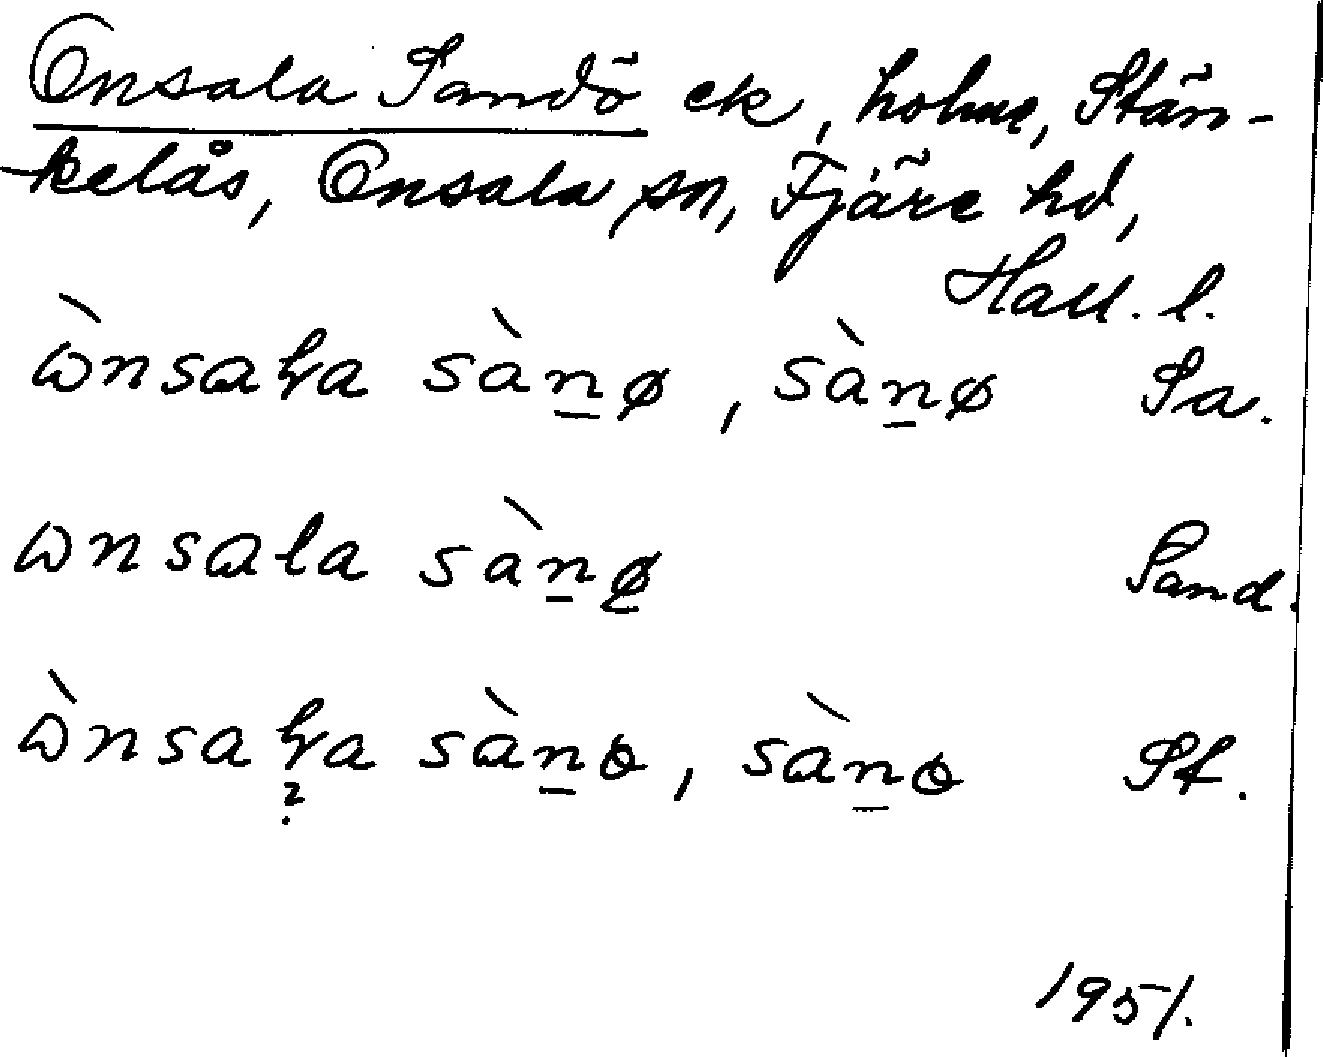 Onsala Sandö ek, holme, Stän-
kelås, Onsala sn, Fjäre hd,
Hall. l.
ὼnsaɽa sàn̲ø, sàn̲ø Sa.
ωnsala sàn̲ø̲ Sand.
ὼnsaɽa sàn̲ɵ, sàn̲ɵ St.
?
1951.